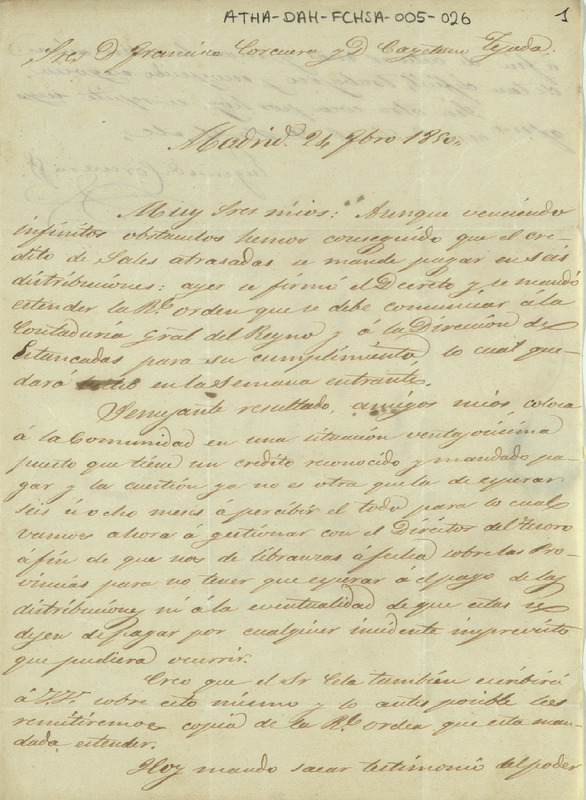 ATHA-DAH-FCHSA-005-026
1
Sres D. Francisco Corcuera y D. Cayetano Tejada.
Madrid. 24 Gbro 1850.
Muy Sres mios: Aunque venciendo
infinitos obstaculos hemos conseguido que el cre-
dito de Sales atrasadas se mande pagar en seis
distribuciones: ayer se firmó el Decreto y se mandó
estender la Rl. orden que se debe comunicar á la
Contaduría Gral del Reyno y a la Direccion de
Estancadas para su cumplimiento lo cual que-
dará en la semana entrante.
Semejante resultado, amigos mios, coloca
á la Comunidad en una situacion ventajosisima
puesto que tiene un credito reconocido y mandado pa-
gar y la cuestion ya no es otra que la de esperar
seis ú ocho meses á percibir el todo para lo cual
vamos ahora á gestionar con el Director del tesoro
á fin de que nos de libranzas á fecha sobre las Pro-
vincias para no tener que esperar á el pago de las
distribuciones ni á la eventualidad de que estas se
dejen de pagar por cualquier incidente imprevisto
que pudiera ocurrir.
Creo que el Sr Cela tambien escribirá
á V.V. sobre esto mismo y lo antes posible les
remitiremos copia de la Rl. orden que esta man-
dada estender.
Hoy mando sacar testimonio del poder